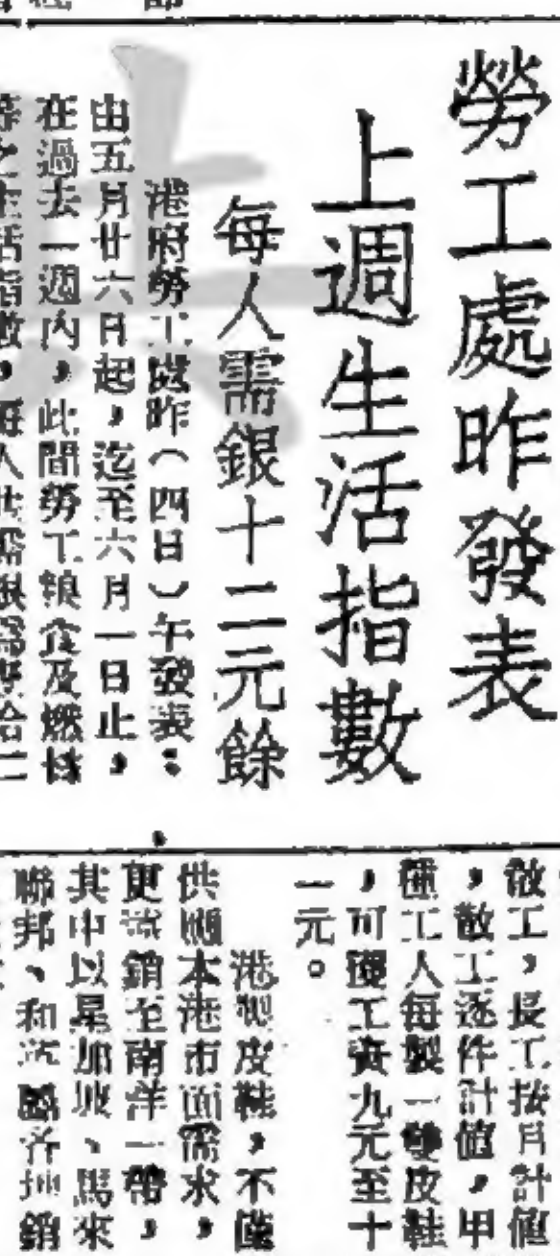 勞工處昨發表
上週生活指數
每人需銀十二元餘
港府勞工處昨（四日）午發表：
由五月廿六日起，迄至六月一日止，
在過去一週內，此間勞工糧食及燃料
等之生活指數，每人共需銀為拾二
散工，長工按月計值
，散工逐件計值，甲
種工人每製一雙皮鞋
，可獲工資九元至十
一元。
港製皮鞋，不僅
供應本港市面需求，
更沽銷至南洋一帶，
其中以星加坡、馬來
聯邦、和各地銷